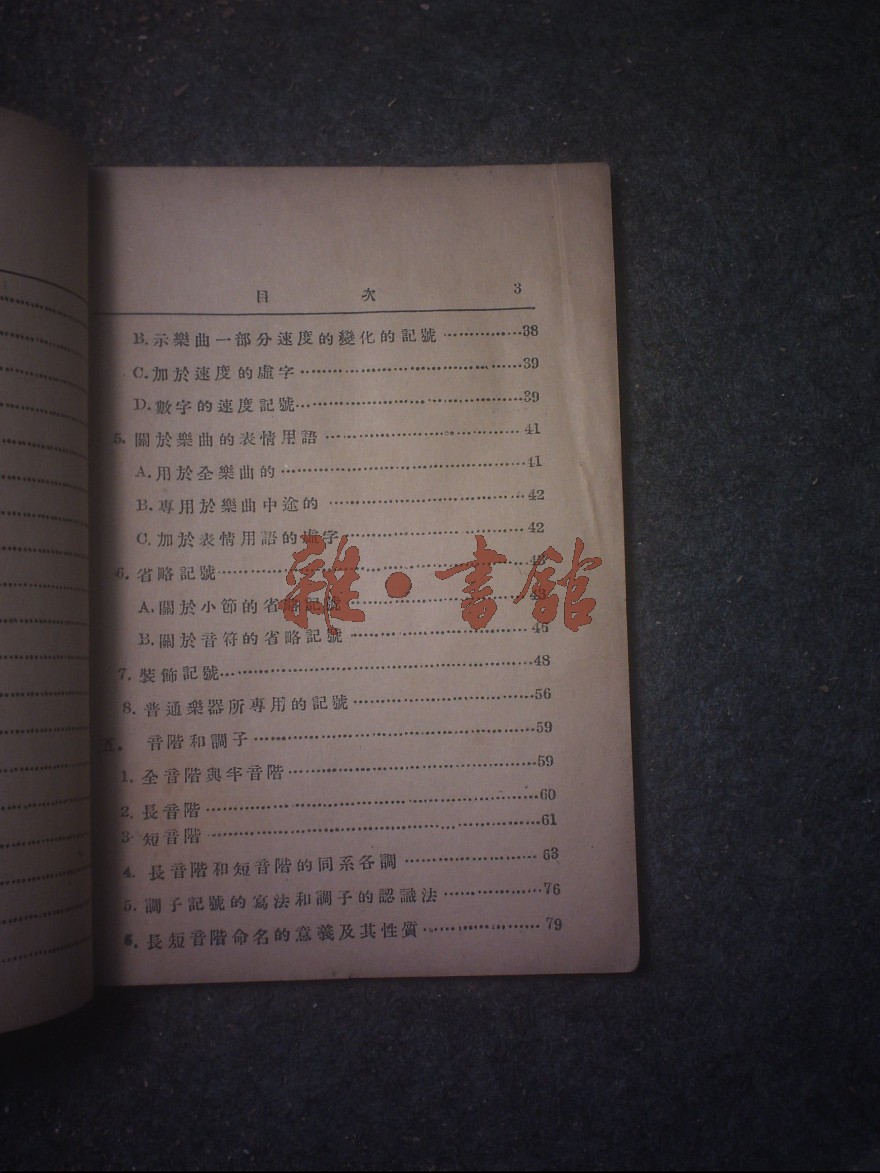 目 次 3
B.示樂曲一部分速度的變化的記號……………38
C.加於速度的虛字……………39
D.數字的速度記號……………39
5.關於樂曲的表情用語……………41
A.用於全樂曲的……………41
B.專用於樂曲中途的……………42
C.加於表情用語的虛字……………42
6.省略記號……………43
A.關於小節的省略記號……………43
雜·書館
B.關於音符的省略記號……………45
7.裝飾記號……………48
8.普通樂器所專用的記號……………56
五. 音階和調子……………59
1.全音階與半音階……………59
2.長音階……………60
3.短音階……………61
4.長音階和短音階的同系各調……………63
5.調子記號的寫法和調子的認識法……………76
6.長短音階命名的意義及其性質……………79